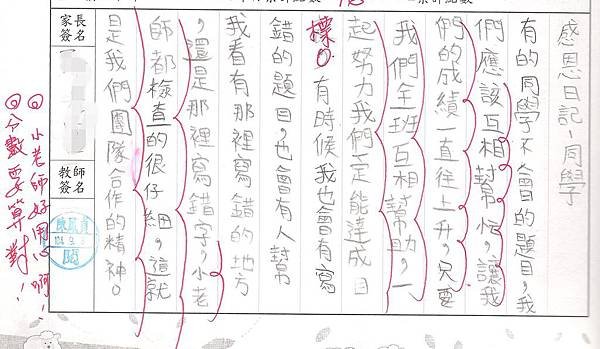 感恩日記-同學
有的同學不會的題目,我
們應該互相幫忙,讓我
們的成績一直往上升,只要
我們全班互相幫助,一
起努力我們一定能達成目
標。有時候我也會有寫
錯的題目,也會有人幫
我看有那裡寫錯的地方
,還是那裡寫錯字,小老
師都檢查的很仔細,這就
是我們團隊合作的精神。
家長簽名
教師簽名
閱
◎小老師好用心啊!
◎分數要算對!